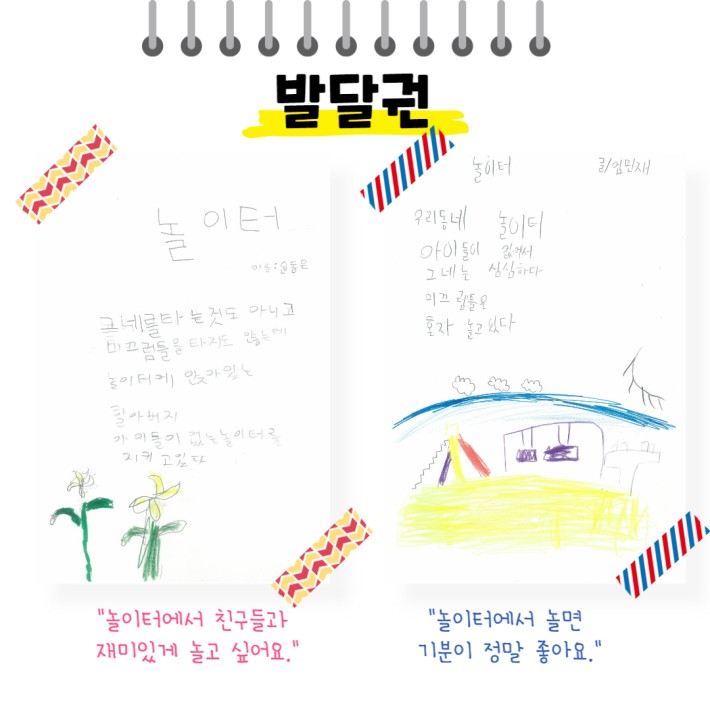 발달권
놀이터
그네를타는것도 아니고
미끄럼틀을 타지도 않는데
놀이터에 앉아있는
할아버지
아이들이 없는놀이터를
지키고있다
"놀이터에서 친구들과
재미있게 놀고 싶어요."
놀이터 글/엄민재
우리동네 놀이터
아이들이 없어서
그네는 심심하다
미끄럼틀은
혼자 놀고 있다
"놀이터에서 놀면
기분이 정말 좋아요."